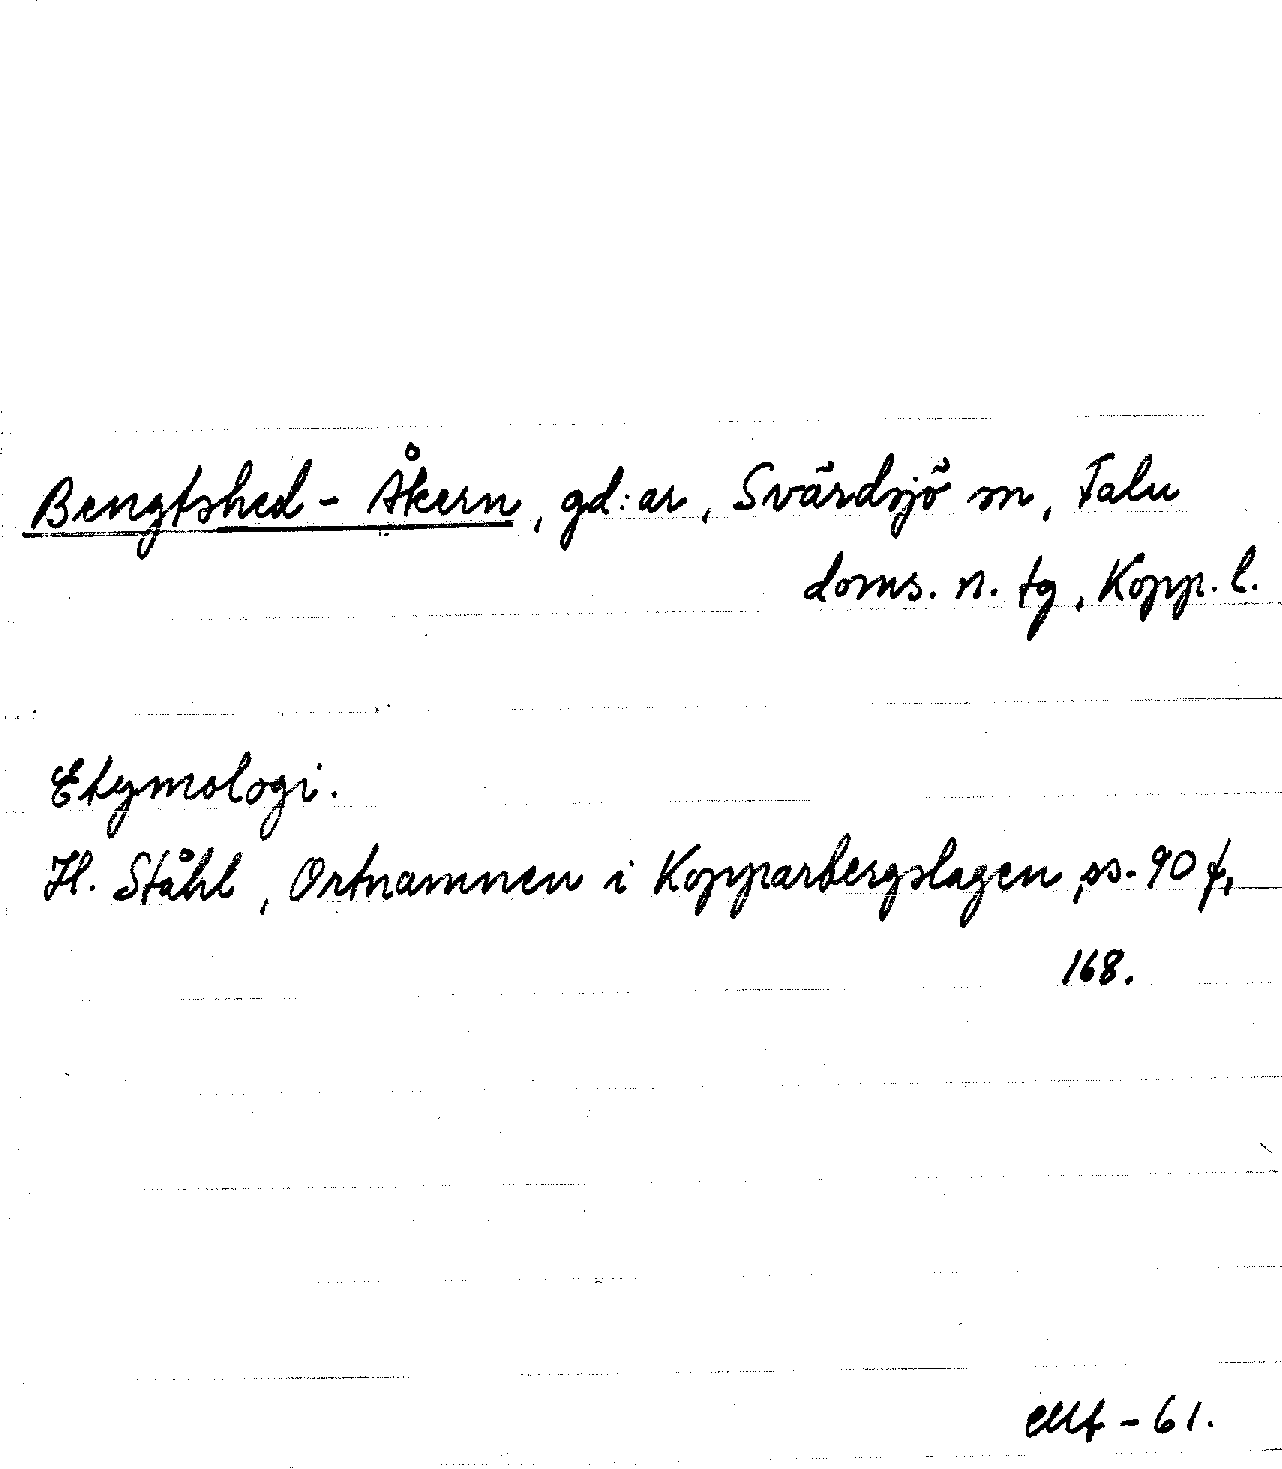 Bengtshed - Åkern, gd:ar, Svärdsjö sn, Falu
doms. n. tg, Kopp. l.
Etymologi.
H. Ståhl, Ortnamnen i Kopparbergslagen ss. 90 f,
168.
-61.